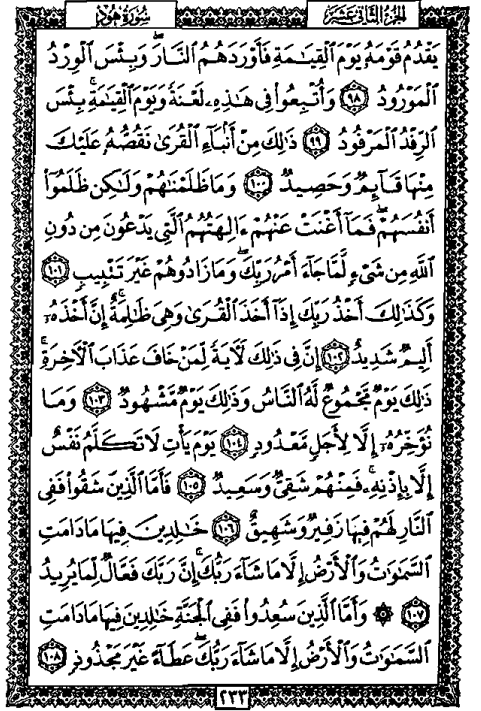 الجزء الثاني عشر
سورة هود
يَقْدُمُ قَوْمَهُۥ يَوْمَ ٱلْقِيَٰمَةِ فَأَوْرَدَهُمُ ٱلنَّارَ ۖ وَبِئْسَ ٱلْوِرْدُ
ٱلْمَوْرُودُ ٩٨ وَأُتْبِعُوا۟ فِى هَٰذِهِۦ لَعْنَةً وَيَوْمَ ٱلْقِيَٰمَةِ ۚ بِئْسَ
ٱلرِّفْدُ ٱلْمَرْفُودُ ٩٩ ذَٰلِكَ مِنْ أَنۢبَآءِ ٱلْقُرَىٰ نَقُصُّهُۥ عَلَيْكَ
مِنْهَا قَآئِمٌ وَحَصِيدٌ ١٠٠ وَمَا ظَلَمْنَٰهُمْ وَلَٰكِن ظَلَمُوٓا۟
أَنفُسَهُمْ ۖ فَمَآ أَغْنَتْ عَنْهُمْ ءَالِهَتُهُمُ ٱلَّتِى يَدْعُونَ مِن دُونِ
ٱللَّهِ مِن شَىْءٍ لَّمَّا جَآءَ أَمْرُ رَبِّكَ ۖ وَمَا زَادُوهُمْ غَيْرَ تَتْبِيبٍ ١٠١
وَكَذَٰلِكَ أَخْذُ رَبِّكَ إِذَآ أَخَذَ ٱلْقُرَىٰ وَهِىَ ظَٰلِمَةٌ ۚ إِنَّ أَخْذَهُۥٓ
أَلِيمٌ شَدِيدٌ ١٠٢ إِنَّ فِى ذَٰلِكَ لَءَايَةً لِّمَنْ خَافَ عَذَابَ ٱلْءَاخِرَةِ ۚ
ذَٰلِكَ يَوْمٌ مَّجْمُوعٌ لَّهُ ٱلنَّاسُ وَذَٰلِكَ يَوْمٌ مَّشْهُودٌ ١٠٣ وَمَا
نُؤَخِّرُهُۥٓ إِلَّا لِأَجَلٍ مَّعْدُودٍ ١٠٤ يَوْمَ يَأْتِ لَا تَكَلَّمُ نَفْسٌ
إِلَّا بِإِذْنِهِۦ ۚ فَمِنْهُمْ شَقِىٌّ وَسَعِيدٌ ١٠٥ فَأَمَّا ٱلَّذِينَ شَقُوا۟ فَفِى
ٱلنَّارِ لَهُمْ فِيهَا زَفِيرٌ وَشَهِيقٌ ١٠٦ خَٰلِدِينَ فِيهَا مَا دَامَتِ
ٱلسَّمَٰوَٰتُ وَٱلْأَرْضُ إِلَّا مَا شَآءَ رَبُّكَ ۚ إِنَّ رَبَّكَ فَعَّالٌ لِّمَا يُرِيدُ
١٠٧ ۞ وَأَمَّا ٱلَّذِينَ سُعِدُوا۟ فَفِى ٱلْجَنَّةِ خَٰلِدِينَ فِيهَا مَا دَامَتِ
ٱلسَّمَٰوَٰتُ وَٱلْأَرْضُ إِلَّا مَا شَآءَ رَبُّكَ ۖ عَطَآءً غَيْرَ مَجْذُوذٍ ١٠٨
٢٣٣